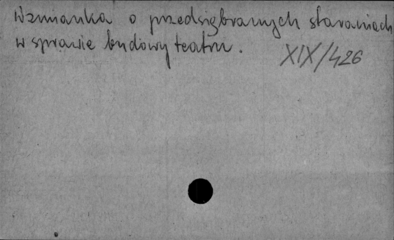 Wzmianka o przedsiębranych staraniach
w sprawie budowy teatru.
XIX/426